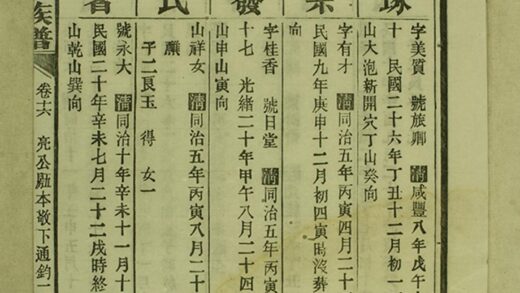 發
字美質 號旅卿 清咸豐八年戊午
十 民國二十六年丁丑十二月初一
山大泡新開穴丁山癸向
字有才 清同治五年丙寅四月二十
民國九年庚申十二月初四寅時沒葬
向
字桂香 號日堂 清同治五年丙寅
十七 光緒二十年甲午八月二十四
山申山寅向
山祥女 清同治五年丙寅八月二十
願
子二良玉 得 女一
號永大 清同治十年辛未十一月十
民國二十年辛未七月二十二戌時終
山乾山巽向
族譜 卷十六 亮公 本敬下通鈞一